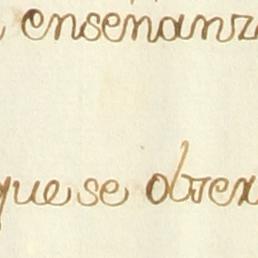 enseñanz
que se obser